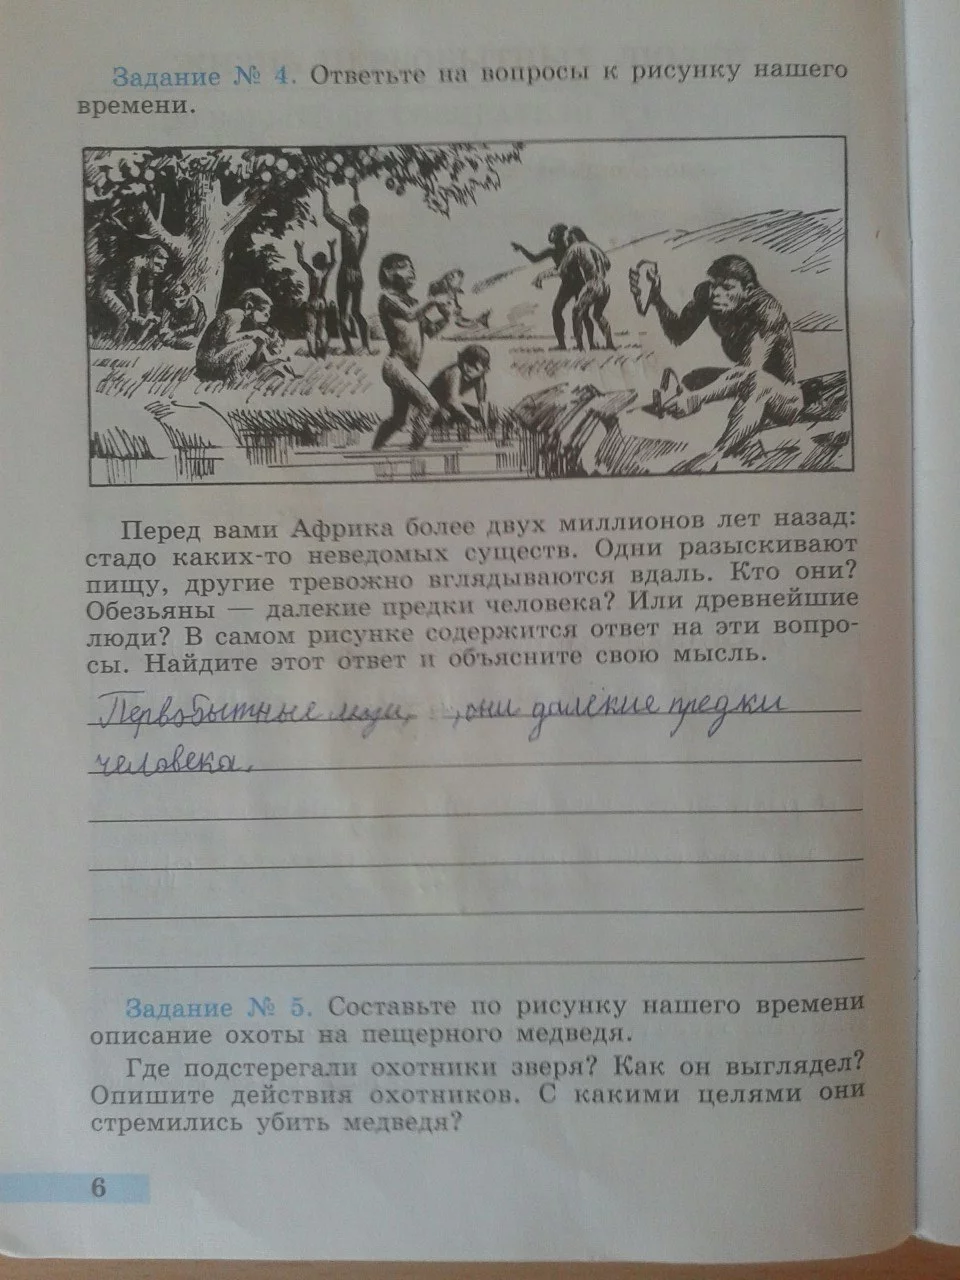 Задание № 4. Ответьте на вопросы к рисунку нашего
времени.
Перед вами Африка более двух миллионов лет назад:
стадо каких-то неведомых существ. Одни разыскивают
пищу, другие тревожно вглядываются вдаль. Кто они?
Обезьяны — далекие предки человека? Или древнейшие
люди? В самом рисунке содержится ответ на эти вопро-
сы. Найдите этот ответ и объясните свою мысль.
Первобытные люди, , они далекие предки
человека.
Задание № 5. Составьте по рисунку нашего времени
описание охоты на пещерного медведя.
Где подстерегали охотники зверя? Как он выглядел?
Опишите действия охотников. С какими целями они
стремились убить медведя?
6